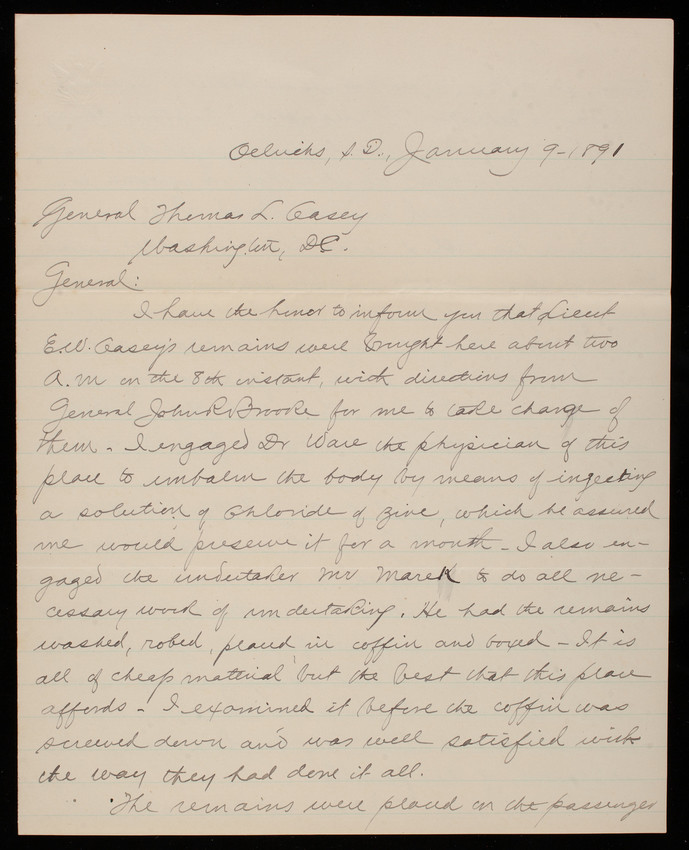 Oelrichs, S.D., January 9-1891
General Thomas L. Casey
Washington, DC.
General:
I have the honor to inform you that Lieut
E.W. Casey's remains were brought here about two
A.M on the 8th instant, with directions from
General John R Brooke for me to take charge of
them - I engaged Dr Ware the physician of this
place to imbalm the body by means of ingecting
a solution of Chloride of Zinc, which he assured
me would preserve it for a month - I also en-
gaged the undertaker Mr Marek to do all ne-
cessary work of undertaking. He had the remains
washed, robed, placed in coffin and boxed - It is
all of cheap material but the best that this place
affords - I examined it before the coffin was
screwed down and was well satisfied with
the way they had done it all.
The remains were placed on the passenger